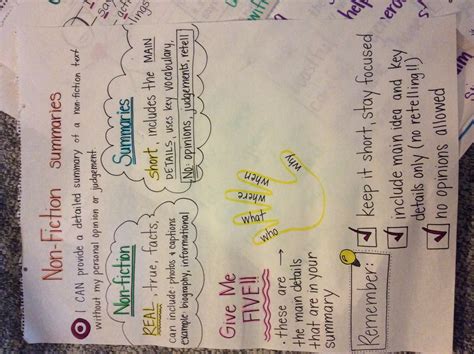 Non-Fiction summaries
I CAN provide a detailed summary of a non-fiction text
without my personal opinion or judgement.
Non-fiction
REAL, true, facts,
can include photos & captions
example: biography, informational
Summaries
short, includes the MAIN
DETAILS uses key vocabulary.
No: opinions, judgements, retell
Give Me
FIVE!!
· these are
the main details
that are in your
summary
who
what
where
when
why
Remember:
keep it short, stay focused
include main idea and key
details only (no retelling!!)
no opinions allowed